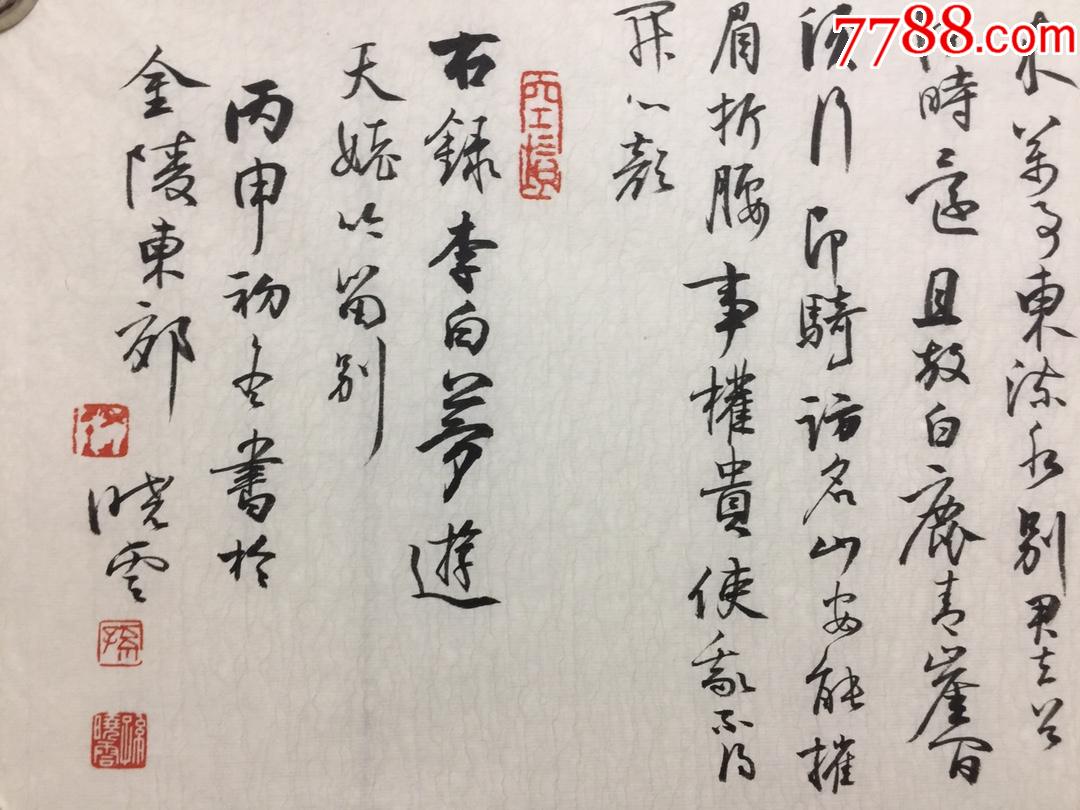 7788.com
來萬事東流水別君去兮
何時還且放白鹿青崖間
須行即騎訪名山安能摧
眉折腰事權貴使我不得
開心顏
右録李白夢遊
天姥吟留別
丙申初冬書於
金陵東郊
晓雲
孫
孫曉雲